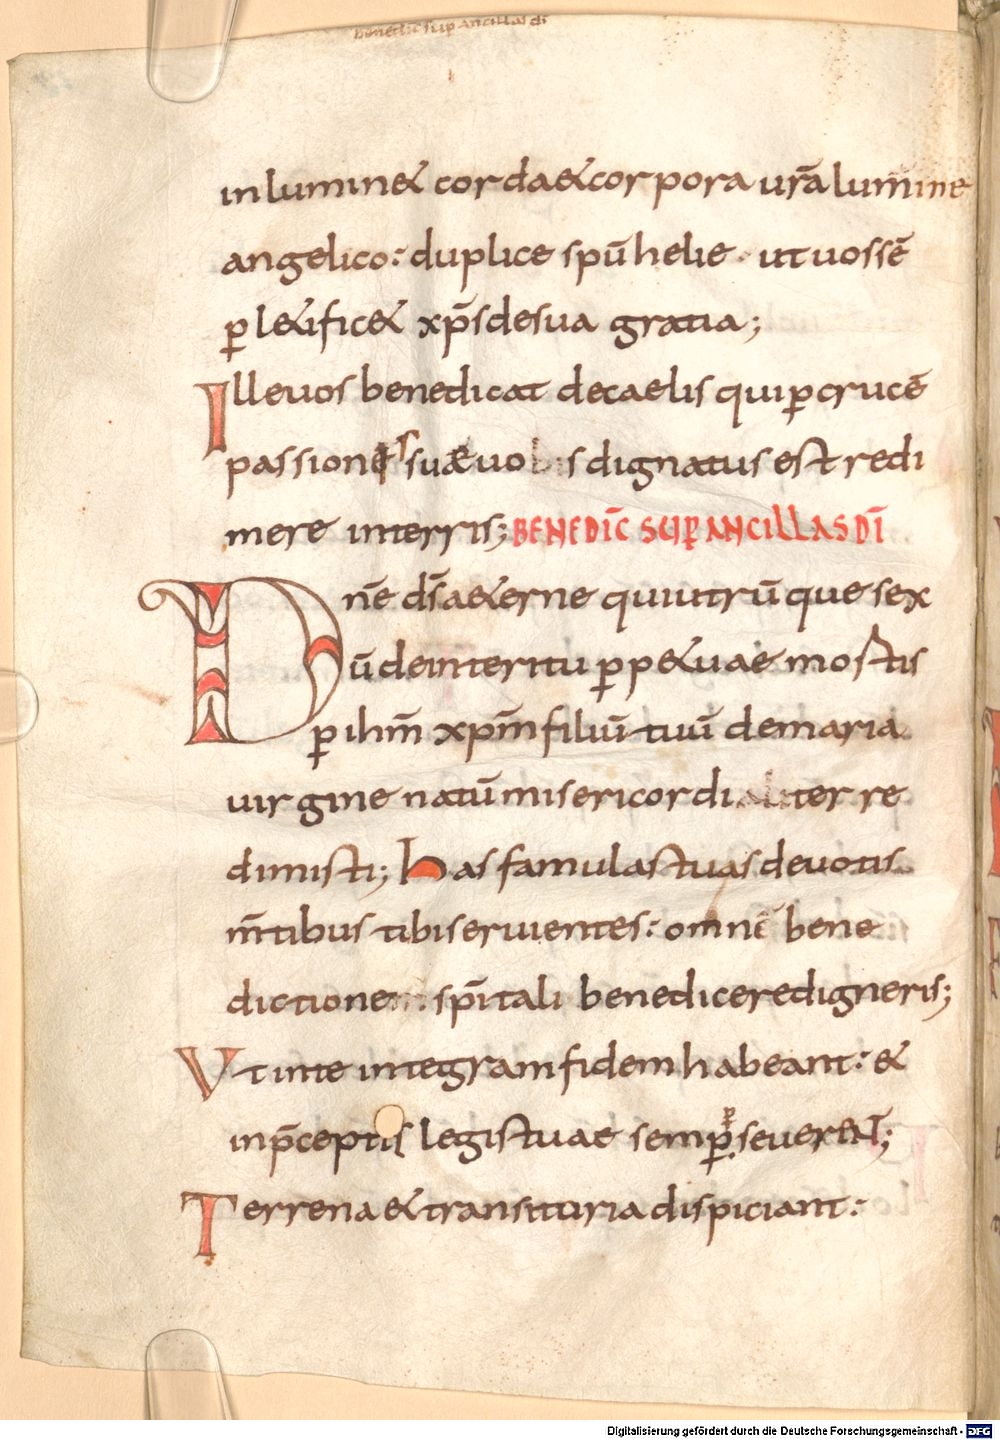 benedic sup ancillas di
inluminet corda et corpora urā lumine
angelico: duplice spū helie. ut uos sē
p̱ letificet xp̄s de sua gratia;
Ille uos benedicat de caelis qui p̱ crucē
passionis suae uobis dignatus est redi
mere in terris; BENEDIC̄ SUP̱ ANCILLAS DĪ
Dn̄e ds̄ aeterne qui utrūque sex
ū de interitu p̱petuae mostis
p̱ ihm̄ xpm̄ filiū tuū de maria
uirgine natū misericordialiter re
dimisti; has famulas tuas deuotis
m̄tibus tibi seruientes: omnē bene
dictione sp̄itali benedicere digneris;
Ut in te integram fidem habeant: et
in p̄ceptis legis tuae semp̱ p̱seuerent;
Terrena et transituria dispiciant:
Digitalisierung gefördert durch die Deutsche Forschungsgemeinschaft - DFG